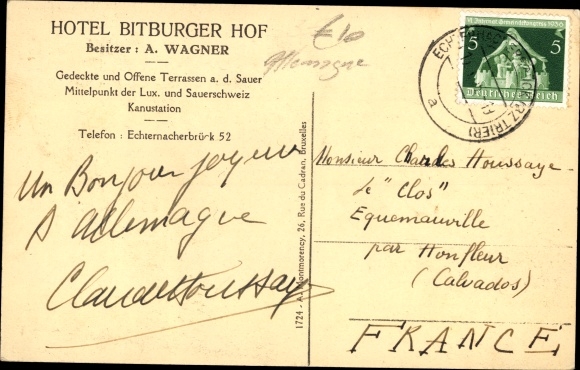 HOTEL BITBURGER HOF
Besitzer : A. WAGNER
Gedeckte und Offene Terrassen a. d. Sauer
Mittelpunkt der Lux. und Sauerschweiz
Kanustation
Telefon : Echternacherbrück 52
€10
Allemagne
Un Bonjour joyeux
d'Allemagne
Claude Houssaye
1724 - A. Montmorency, 26, Rue du Cadran, Bruxelles
5 5
Deutsches Reich
(BZ. TRIER)
a
Monsieur Charles Houssaye
Le "Clos"
Equemauville
par Honfleur
(Calvados)
FRANCE